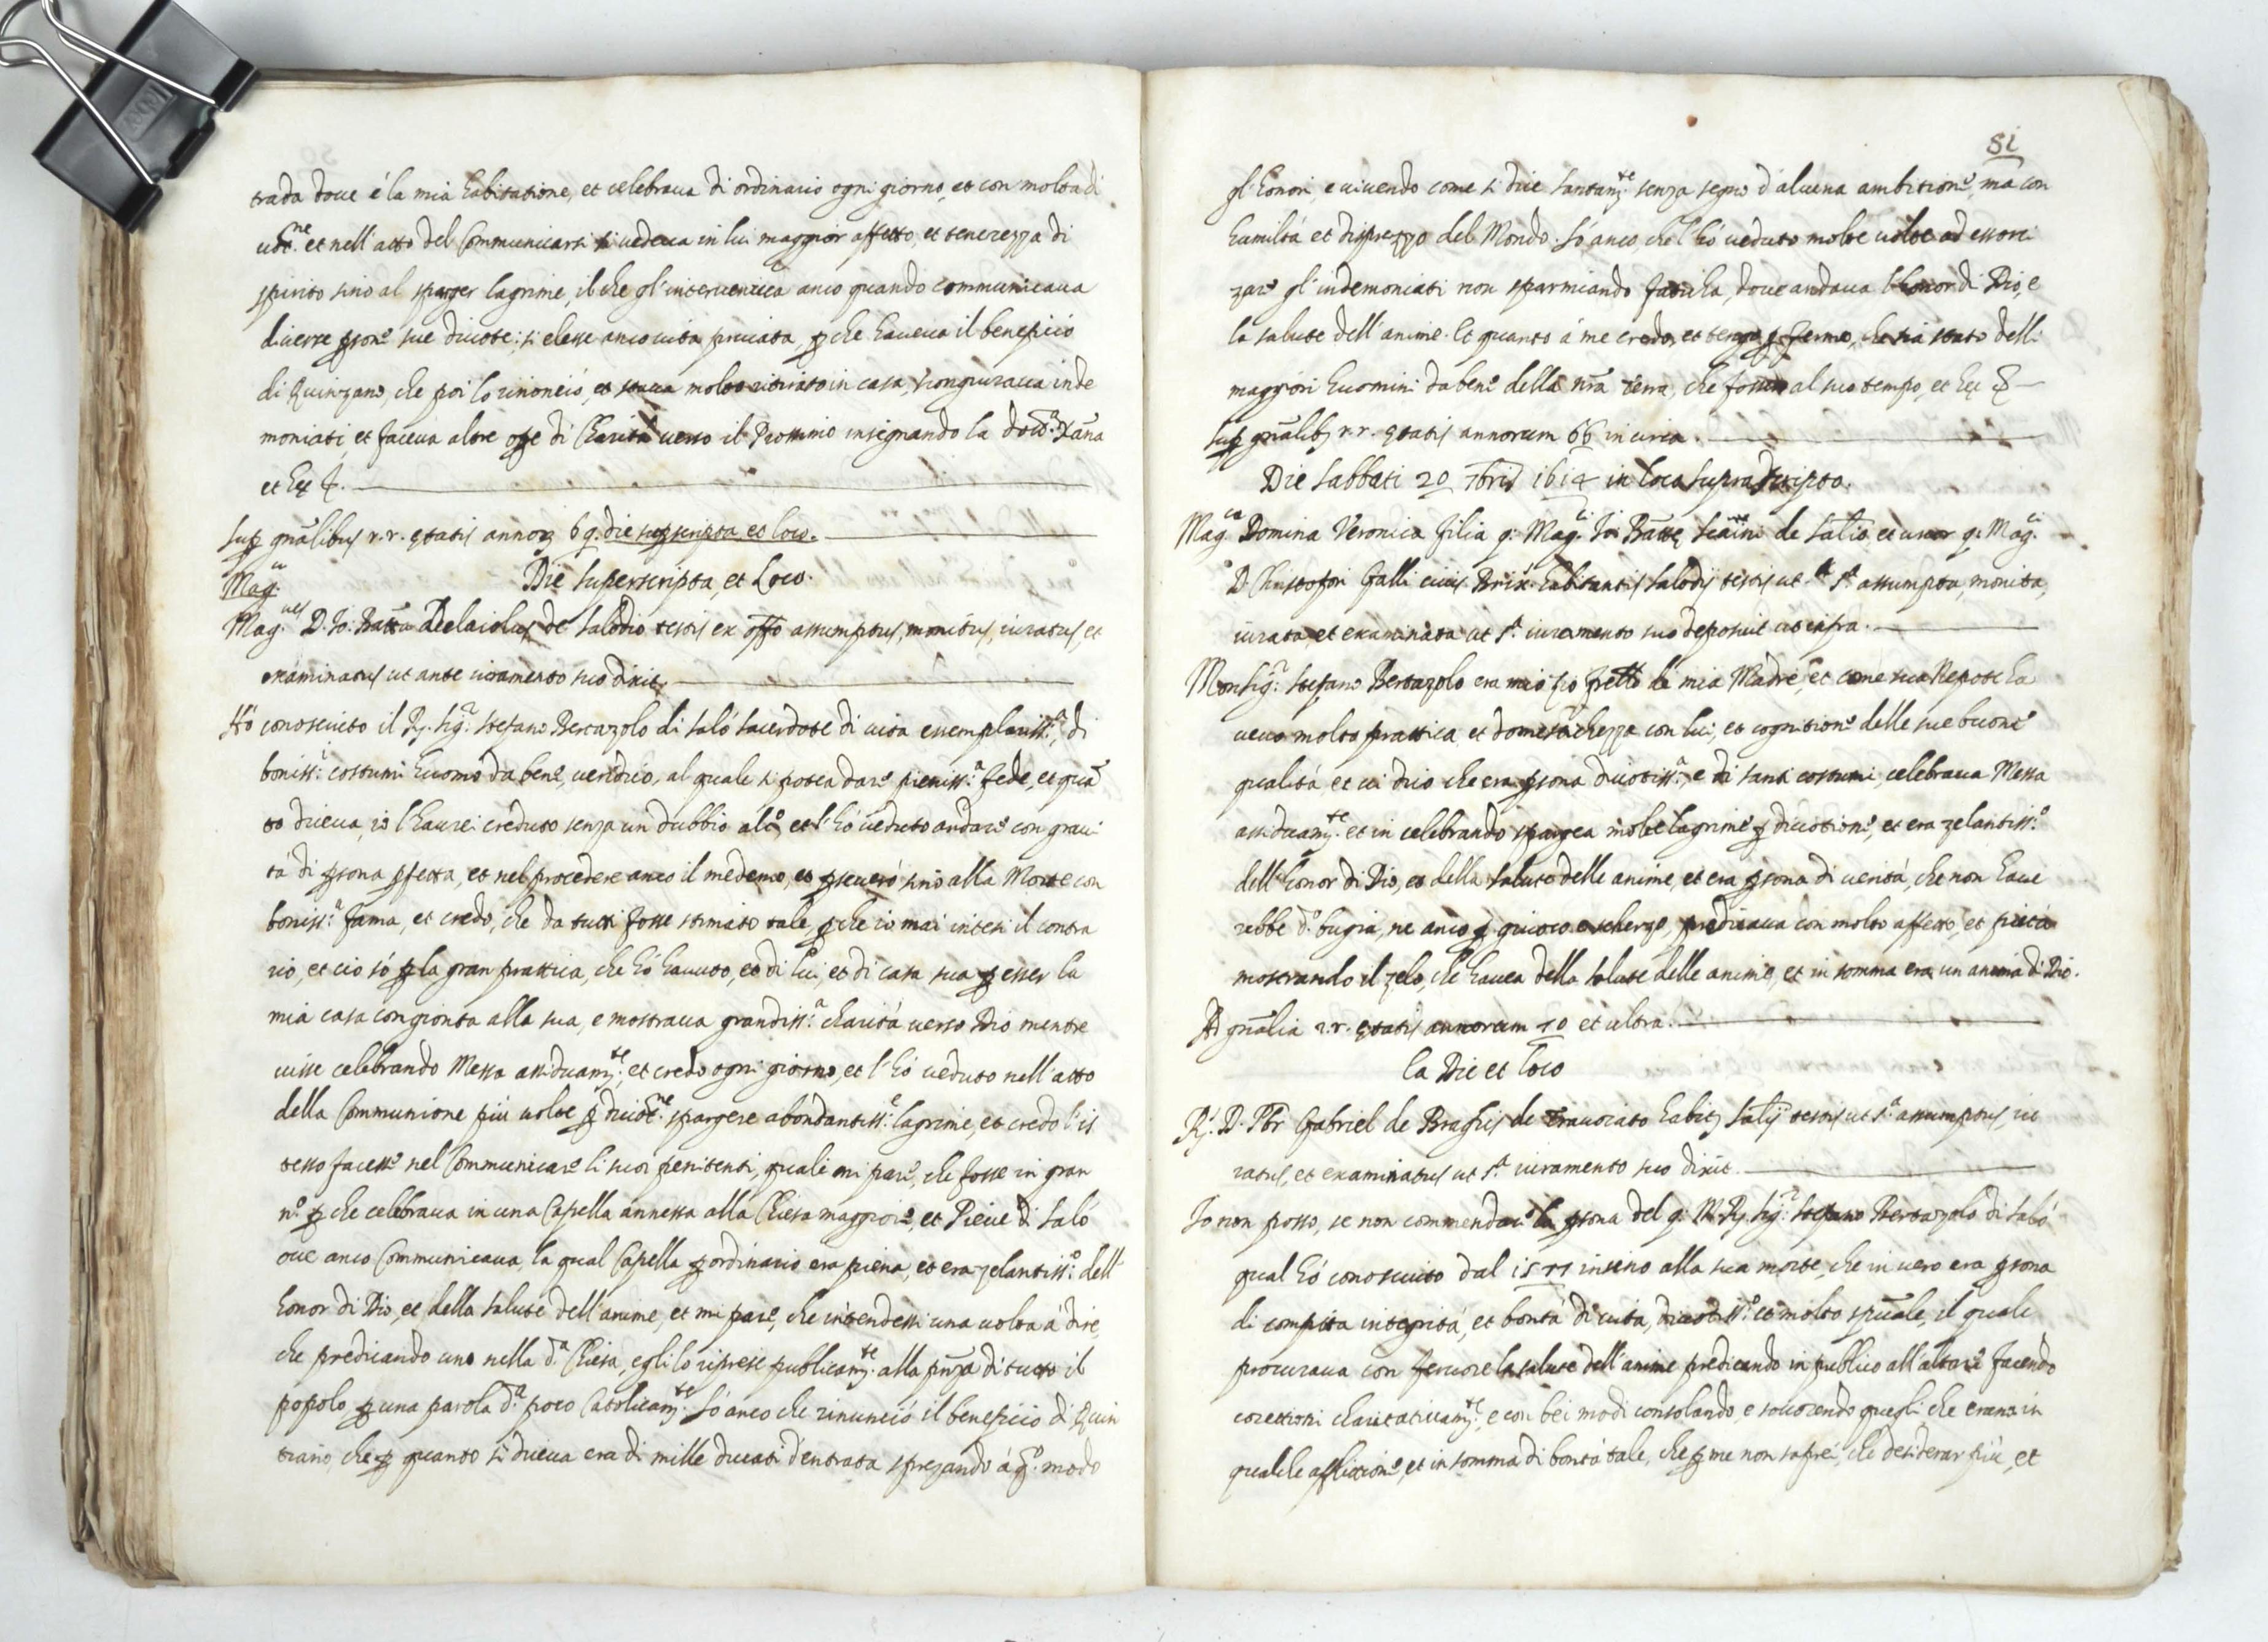 trada doue é la mia habitatione, et celebraua di ordinario ogni giorno, et con molta di
uot.ne et nell'atto del Communicarsi si uedeua in lui maggior affetto, et tenerezza di
spirito sino al sparger lagrime, il che gl'interueniua anco quando communicaua
diuerse ꝑsone sue diuote: si elesse anco uita priuata, ꝑche haueua il beneficio
di Quinzano, che poi lo rinonció, et staua molto ritirato in casa, scongiuraua inde
moniati, et faceua altre oꝑe di Charitá uerso il Prossimo insegnando la dott.a Xana
et hęc
Suꝑ gn̄alibus r.r. ętatis annoꝝ 69. die suꝑscripta et loco.
Mag.cus
Die superscripta, et Loco.
Mag.cus D. Io: Batta de Salodio testis ex offo assumptus, monitus, iuratus, et
examinatus ut ante iuramento suo dixit.
Hó conosciuto il R. Sig.r Stefano Bertazolo di Saló sacerdote di uita essempariss.a, di
boniss.i costumi huomo da bene, ueridico, al quale si potea dare pieniss.a fede, et quā
to diceua, io l'haurei creduto senza un dubbio alc.o, et l'hó ueduto andare con graui
tá di ꝑsona ꝑfetta, et nel procedere anco il medemo, et ꝑseueró sino alla Morte con
boniss.a fama, et credo, che da tutti fosse stimato tale, ꝑche io mai intesi il contra
rio, et cio só ꝑ la gran prattica, che hó hauuto, et di lui, et di casa sua ꝑ esser la
mia casa congionta alla sua, e mostraua grandiss.a charitá uerso Dio mentre
uisse celebrando Messa assiduam.te, et credo ogni giorno, et l'hó ueduto nell'atto
della Communione piú uolte ꝑ diuot.ne spargere abondantiss.e lagrime, et credo l'is
tesso facesse nel Communicare li suoi penitenti, quali mi pare, che fosse in gran
n.o ꝑche celebraua in una Capella annessa alla Chiesa maggiore, et Pieue di Saló
oue anco Communicaua, la qual Capella ꝑ ordinario era piena, et era zelantiss.o dell'
honor di Dio, et della salute dell'anime, et mi pare, che intendessi una uolta á dire,
che predicando uno nella d.a Chiesa, egli lo riprese publicam.te alla pn̄za di tutto il
popolo ꝑ una parola d.a poco Catolicam.te Só anco che rinunció il beneficio di Quin
trano, che ꝑ quanto si diceua era di mille ducati d'entrata sprezando á q.o modo
81
gl'honori, e uiuendo come si dice santam.te senza segno d'alcuna ambitione, ma con
humiltá et disprezzo del Mondo. Só anco, che l'hó ueduto molte uolte ad essorci
zare gl'indemoniati non sparmiando faticha, doue andaua l'honor di Dio, e
la salute dell'anime. Et quanto á me credo, et tengo ꝑ fermo, che sia stato delli
maggiori huomini da bene della nr̄a Terra, che fossero al suo tempo, et hęc
Suꝑ gn̄alibꝫ r.r. ętatis annorum 66 in circa.
Die Sabbati 20 7bris 1614 in loco supra scripto.
Mag.ca Domina Veronica filia q: Mag.ci Io: Battę Scaini de Salo, et uxor q: Mag.ci
D. Christofori Galli ciuis Brix. habitantis Salodij testis ut s.a assumpta, monita,
iurata, et examinata ut s.a iuramento suo deposuit ut infra.
Monsig.r Stefano Bertazolo era mio zio frello di mia Madre, et come sua Nepote ha
ueuo molta prattica, et domestichezza con lui, et cognitione delle sue buone
qualitá et ui dico che era ꝑsona diuotiss.a, e di santi costumi, celebraua Messa
assiduam.te et in celebrando spargea molte lagrime ꝑ diuotione, et era zelantiss.o
dell'honor di Dio, et della salute delle anime, et era ꝑsona di ueritá, che non haue
rebbe d.o bugia, ne anco ꝑ giuoco e scherzo, predicaua con molto affetto, et pietá
mostrando il zelo, che hauea della salute delle anime, et in somma era un anima di Dio.
Ad gn̄alia r.r. ętatis annorum 70 et ultra.
Ea Die et loco
R. D. Pbr Gabriel de Braghis de habit. Salij testis ut s.a assumptus, iu
ratus, et examinatus ut s.a iuramento suo dixit.
Io non posso, se non commendare la ꝑsona del q: M. R. Sig.r Stefano Bertazolo di Saló
qual hó conosciuto dal 1577 insino alla sua morte, che in uero era ꝑsona
di compita integritá, et bontá di uita, diuotiss.o et molto spūale, il quale
procuraua con feruore la salute dell'anime predicando in publico all'altare facendo
corettioni charitatiuam.te, e con bei modi consolando, e socorendo quegli che erano in
qualche afflictione, et in somma di bontá tale, che ꝑ me non saprei, che desiderar piú, et